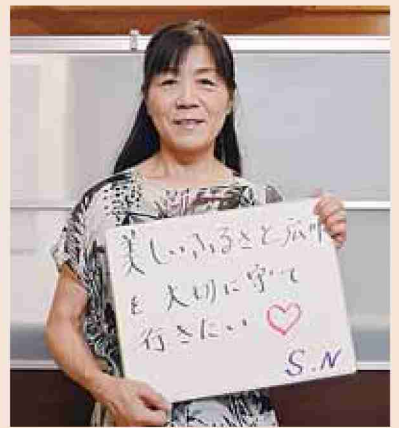 美しいふるさと広川
を大切に守って
行きたい♡
S.N